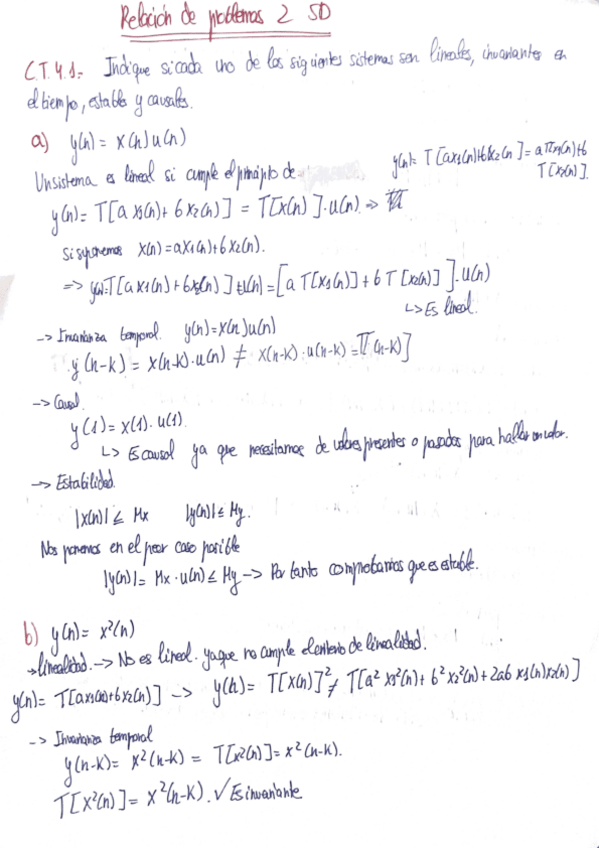 Relación de problemas 2 SD
C.T.4.1.- Indique si cada uno de los siguientes sistemas son lineales, invariantes en
el tiempo, estables y causales.
a) y(n) = x(n)u(n)
Un sistema es lineal si cumple el principio de
y(n) = T[a x1(n) + b x2(n)] = a T[x1(n)] + b
T[x2(n)].
y(n) = T[a x1(n) + b x2(n)] = T[x(n)].u(n) =>
Si suponemos x(n) = ax1(n) + b x2(n).
=> y(n) = T[a x1(n) + b x2(n)] u(n) = [a T[x1(n)] + b T[x2(n)]].u(n)
↳ Es lineal.
-> Invarianza temporal. y(n) = x(n)u(n)
y(n-k) = x(n-k).u(n) ≠ x(n-k).u(n-k) = T(n-k)]
-> Causal.
y(1) = x(1).u(1).
↳ Es causal ya que necesitamos de valores presentes o pasados para hallar un valor.
-> Estabilidad.
|x(n)| ≤ Mx |y(n)| ≤ My.
Nos ponemos en el peor caso posible
|y(n)| = Mx.u(n) ≤ My -> Por tanto comprobamos que es estable.
b) y(n) = x²(n)
->linealidad. -> No es lineal. ya que no cumple el criterio de linealidad.
y(n) = T[ax1(n)+bx2(n)] -> y(n) = T[x(n)]² ≠ T[a² x1²(n) + b² x2²(n) + 2ab x1(n)x2(n)]
-> Invarianza temporal
y(n-k) = x²(n-k) = T[x²(n)] = x²(n-k).
T[x²(n)] = x²(n-k). ✓ Es invariante